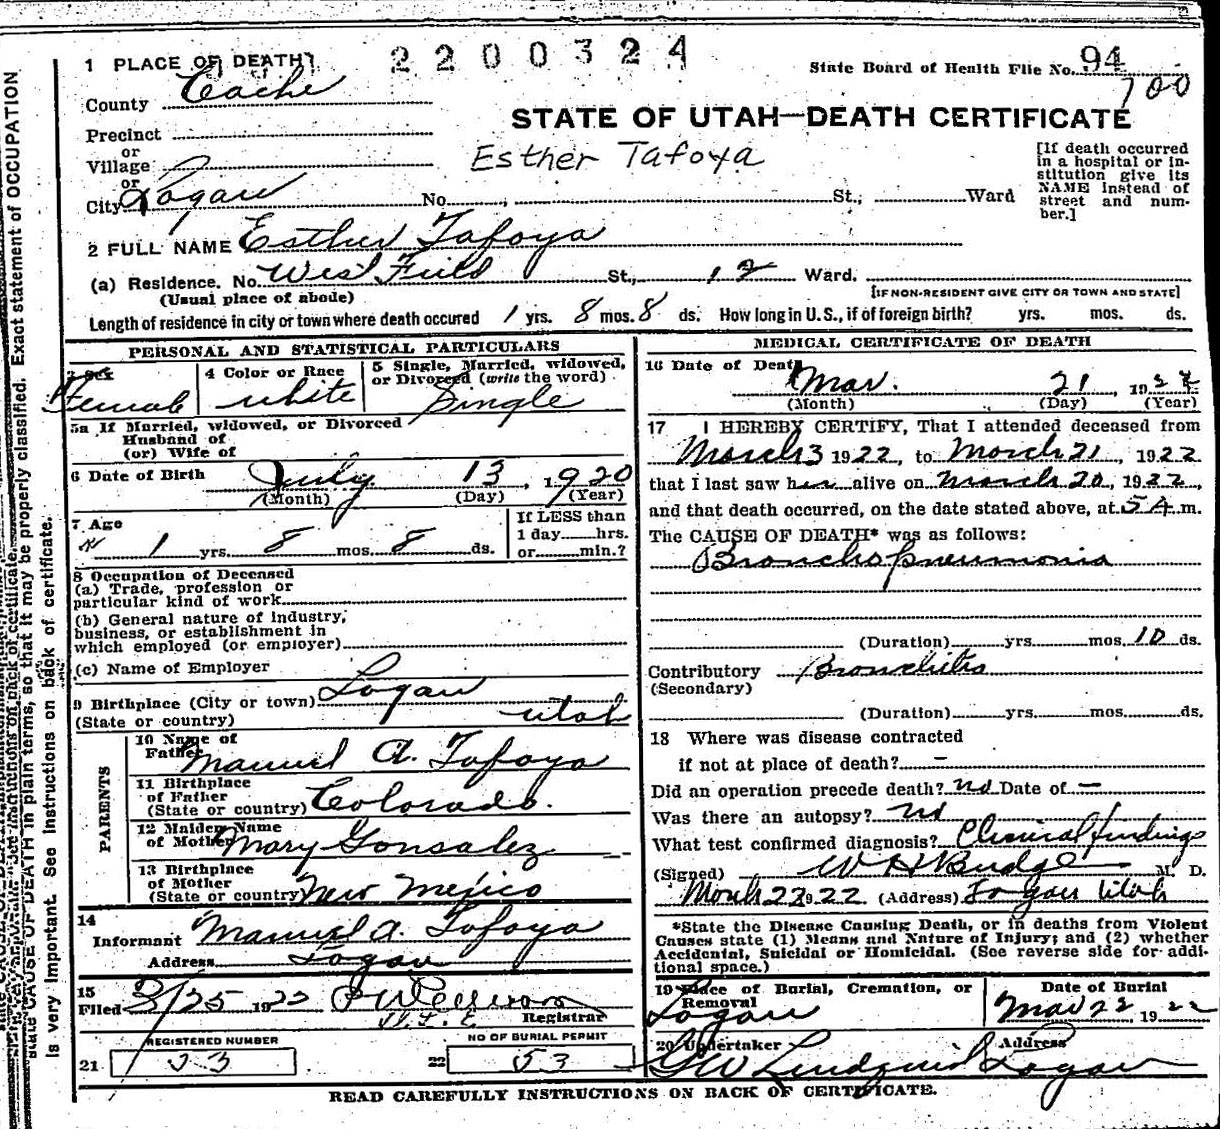 2200324
1 PLACE OF DEATH
State Board of Health File No. 94
County Cache
700
STATE OF UTAH—DEATH CERTIFICATE
Precinct
or
Village
Esther Tafoya
[If death occurred in a hospital or institution give its NAME instead of street and number.]
or
City Logan No. St.; Ward
2 FULL NAME Esther Tafoya
(a) Residence. No. West Field St., 12 Ward.
(Usual place of abode)
[IF NON-RESIDENT GIVE CITY OR TOWN AND STATE]
Length of residence in city or town where death occured 1 yrs. 8 mos. 8 ds. How long in U.S., if of foreign birth? yrs. mos. ds.
PERSONAL AND STATISTICAL PARTICULARS
3 Sex
Female
4 Color or Race
white
5 Single, Married, widowed,
or Divorced (write the word)
Single
5a If Married, widowed, or Divorced
Husband of
(or) Wife of
6 Date of Birth July 13, 1920
(Month) (Day) (Year)
7 Age
1 yrs. 8 mos. 8 ds.
If LESS than
1 day hrs.
or min.?
8 Occupation of Deceased
(a) Trade, profession or
particular kind of work
(b) General nature of industry,
business, or establishment in
which employed (or employer)
(c) Name of Employer
9 Birthplace (City or town) Logan
(State or country) Utah
PARENTS
10 Name of
Father Manuel A. Tafoya
11 Birthplace
of Father
(State or country) Colorado.
12 Maiden Name
of Mother Mary Gonsalez
13 Birthplace
of Mother
(State or country) New Mexico
14
Informant Manuel A. Tafoya
Address Logan
15
Filed 3/25 1922
Registrar
REGISTERED NUMBER
21 53
NO OF BURIAL PERMIT
22 53
MEDICAL CERTIFICATE OF DEATH
16 Date of Death Mar. 21, 1922
(Month) (Day) (Year)
17 I HEREBY CERTIFY, That I attended deceased from
March 3 1922, to March 21, 1922
that I last saw her alive on March 20, 1922,
and that death occurred, on the date stated above, at 5 A m.
The CAUSE OF DEATH* was as follows:
Broncho pneumonia
(Duration) yrs. mos. 10 ds.
Contributory Bronchitis
(Secondary)
(Duration) yrs. mos. ds.
18 Where was disease contracted
if not at place of death? –
Did an operation precede death? no Date of —
Was there an autopsy? no
What test confirmed diagnosis? Clinical findings
(Signed) W H Budge M. D.
March 23 1922 (Address) Logan Utah
*State the Disease Causing Death, or in deaths from Violent
Causes state (1) Means and Nature of Injury; and (2) whether
Accidental, Suicidal or Homicidal. (See reverse side for addi-
tional space.)
19 Place of Burial, Cremation, or
Removal
Logan
Date of Burial
Mar 22, 1922
20 Undertaker
G W Lindquist
Address
Logan
READ CAREFULLY INSTRUCTIONS ON BACK OF CERTIFICATE.
state CAUSE OF DEATH in plain terms, so that it may be properly classified. Exact statement of OCCUPATION
is very important. See instructions on back of certificate.